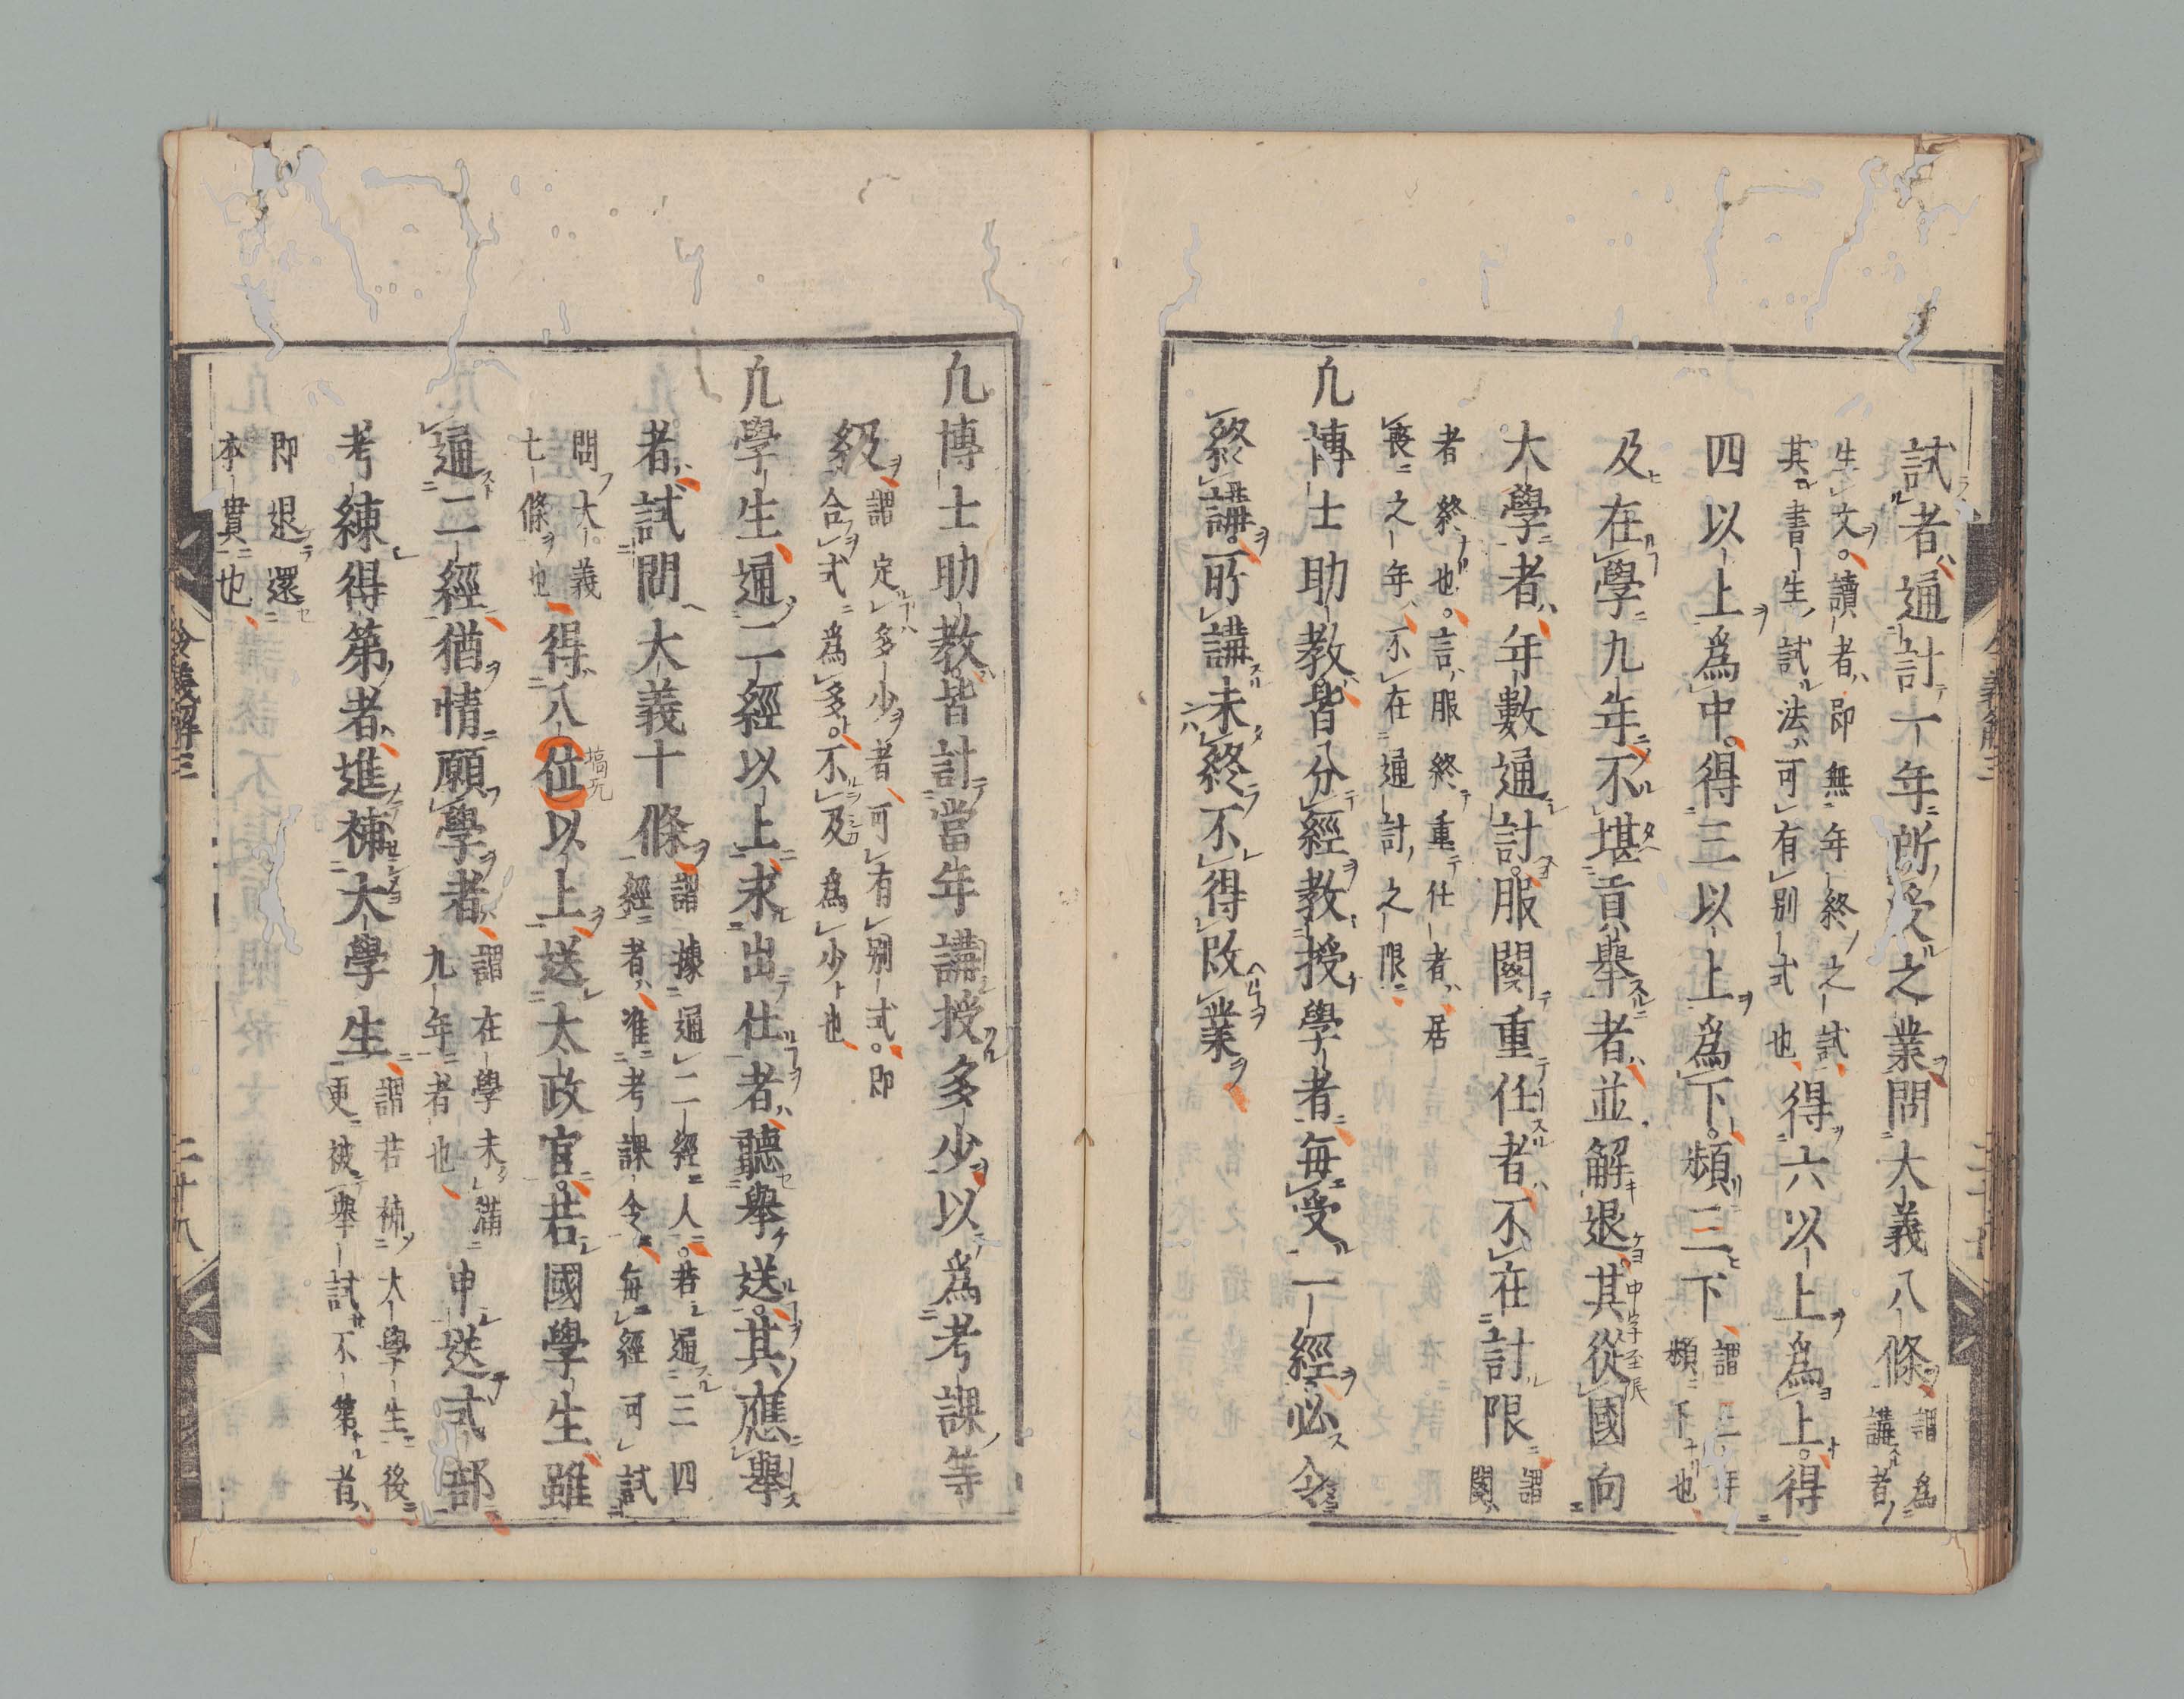 試者通計一年所受之業問大義八條謂為講者
生文。讀者即無年終之試其書生試法可有別式也得六以上為上。得
四以上為中。得三以上為下。頻三下謂三年頻下也
及在學九年不堪貢舉者並解退其從國向
大學者年數通計。服闋重任者不在計限謂闋
者終也。言服終重仕者居喪之年不在通計之限
凡博士助教皆分經教授學者每受一經必令
終講。所講未終不得改業
中字至限
令義解三
凡博士助教皆計當年講授多少以為考課等
級謂定多少者可有別式。即合式為多。不及為少也
凡學生通二經以上求出仕者聽舉送。其應舉
者試問大義十條謂據通二經人。若通三四經者准考課令每經可試
問大義七條也得八位以上送太政官。若國學生雖
通二經猶情願學者謂在學未滿九年者也申送式部
考練得第者進補大學生謂若補大學生後更被舉試不第者
即退還本貫也
令義解三
二十八